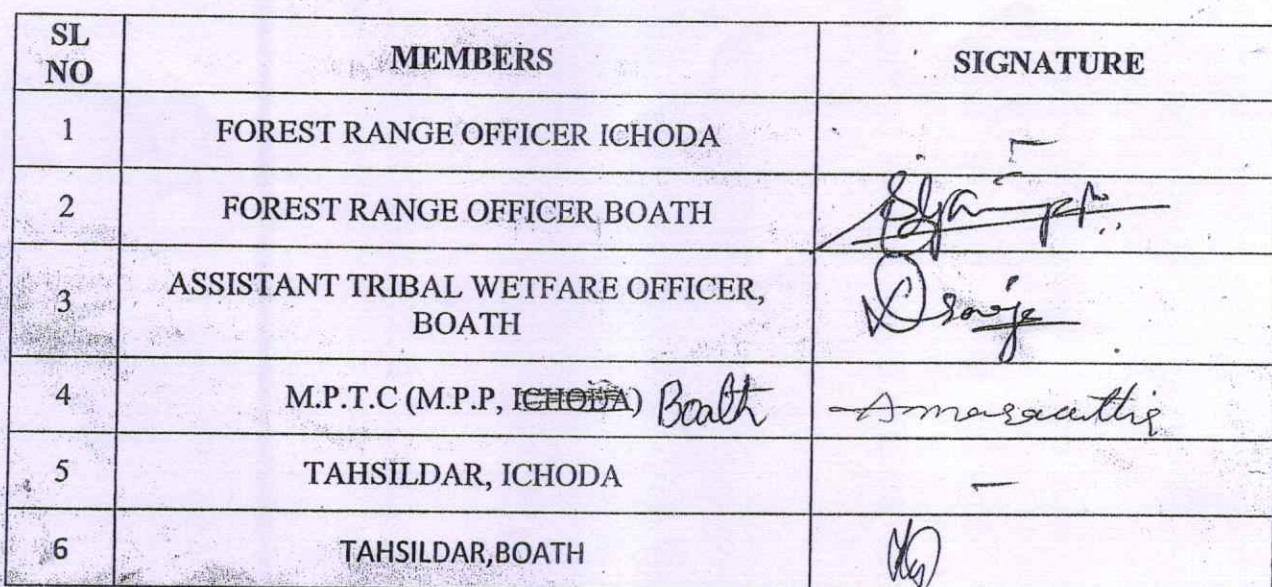 SL NO MEMBERS SIGNATURE
1 FOREST RANGE OFFICER ICHODA -
2 FOREST RANGE OFFICER BOATH
3 ASSISTANT TRIBAL WETFARE OFFICER,
BOATH
4 M.P.T.C (M.P.P, ICHODA) Boath
5 TAHSILDAR, ICHODA -
6 TAHSILDAR,BOATH